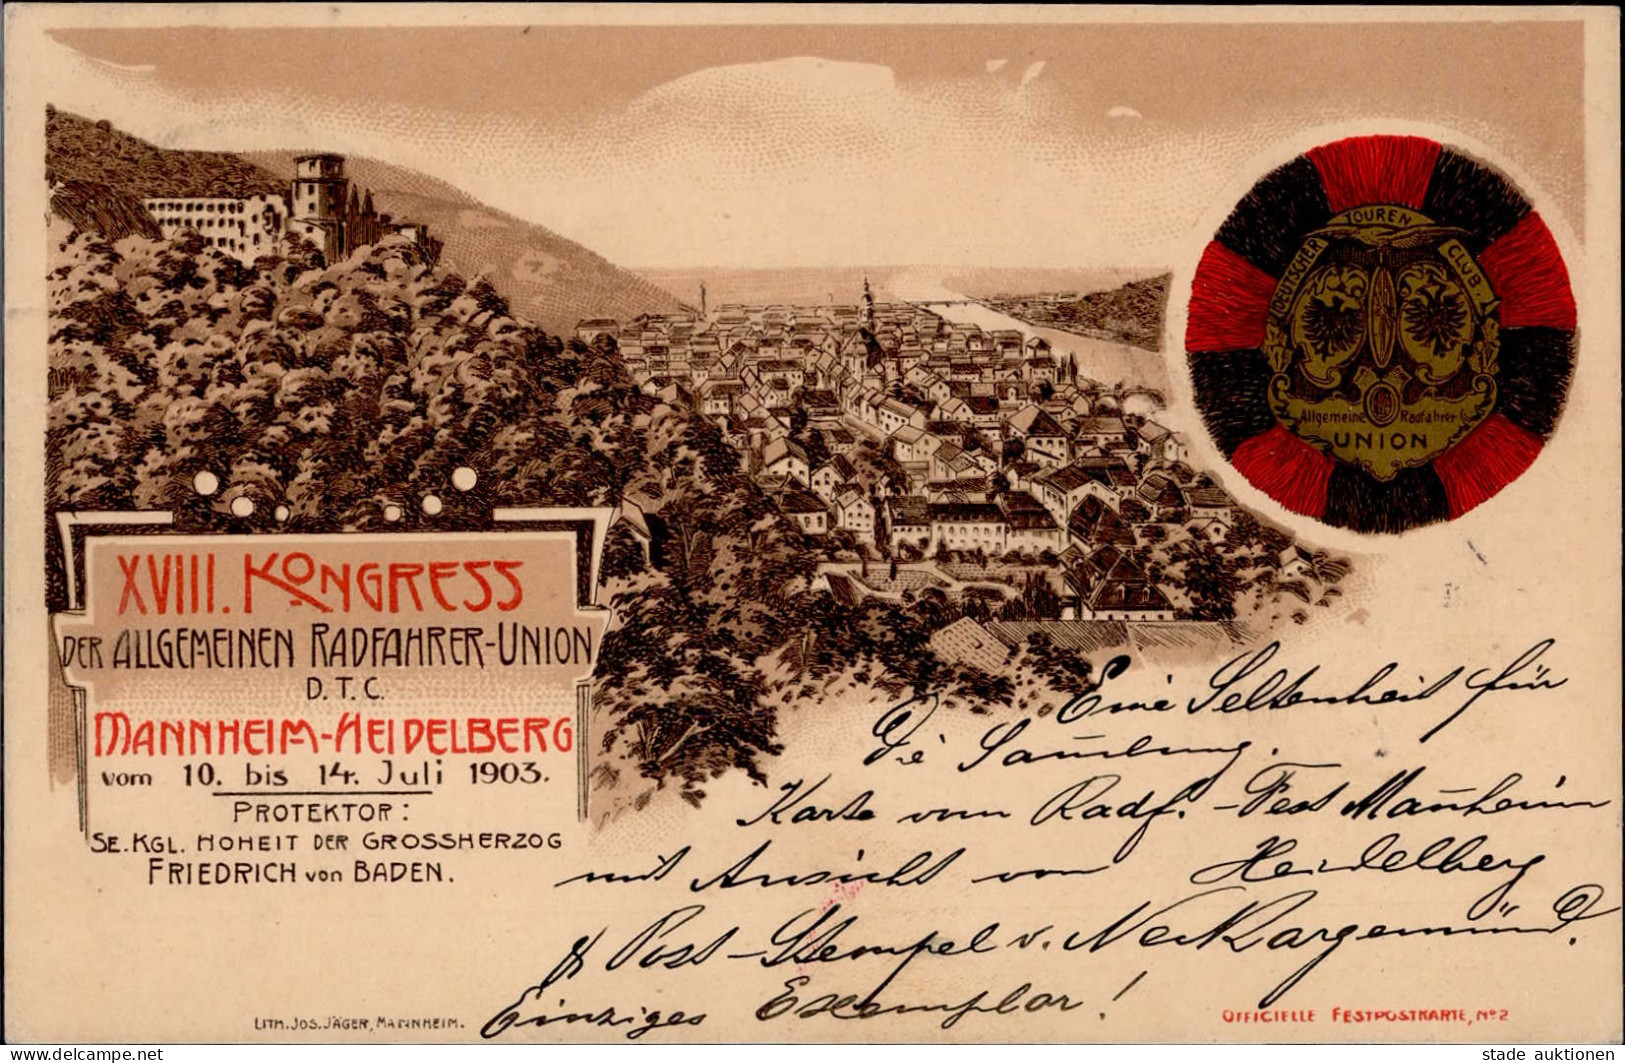 DEUTSCHER TOUREN CLUB.
Allgemeine Radfahrer
UNION
XVIII. KONGRESS
DER ALLGEMEINEN RADFAHRER-UNION
D.T.C.
MANNHEIM-HEIDELBERG
vom 10. bis 14. Juli 1903.
PROTEKTOR:
SE. KGL. HOHEIT DER GROSSHERZOG
FRIEDRICH von BADEN.
Eine Seltenheit für
die Sam̄lung.
Karte vom Radf.-Fest Man̄heim
mit Ansicht von Heidelberg
& Post-Stempel v. Neckargemünd.
Einziges Exemplar!
LITH. JOS. JÄGER, MANNHEIM.
OFFICIELLE FESTPOSTKARTE, No 2
stade auktionen